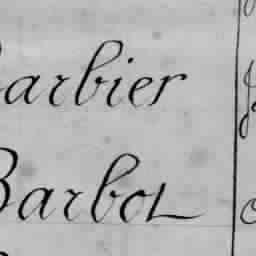 Barbier
Barbot